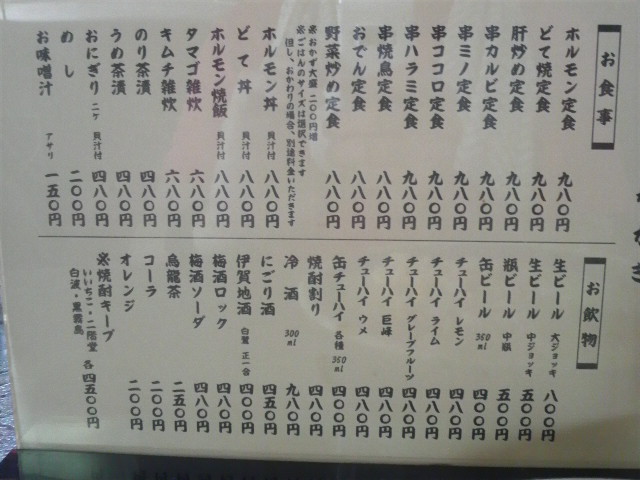 お食事
ホルモン定食 九八〇円
どて焼定食 九八〇円
肝炒め定食 九八〇円
串カルビ定食 九八〇円
串ミノ定食 九八〇円
串ココロ定食 九八〇円
串ハラミ定食 九八〇円
串焼鳥定食 八八〇円
おでん定食 八八〇円
野菜炒め定食 八八〇円
※おかず大盛 二〇〇円増
※ごはんのサイズは選択できます
但し、おかわりの場合、別途料金いただきます
ホルモン丼 貝汁付 八八〇円
どて丼 貝汁付 八八〇円
ホルモン焼飯 貝汁付 八八〇円
タマゴ雑炊 六八〇円
キムチ雑炊 六八〇円
のり茶漬 四八〇円
うめ茶漬 四八〇円
おにぎり 二ケ 貝汁付 四八〇円
めし 二〇〇円
お味噌汁 アサリ 一五〇円
お飲物
生ビール 大ジョッキ 八〇〇円
生ビール 中ジョッキ 五〇〇円
瓶ビール 中瓶 五〇〇円
缶ビール 350ml 四〇〇円
チューハイ レモン 四八〇円
チューハイ ライム 四八〇円
チューハイ グレープフルーツ 四八〇円
チューハイ 巨峰 四八〇円
チューハイ ウメ 四八〇円
缶チューハイ 各種 350ml 四〇〇円
焼酎割り 四八〇円
冷酒 300ml 九八〇円
にごり酒 四五〇円
伊賀地酒 白鷺 正一合 四八〇円
梅酒ロック 四八〇円
梅酒ソーダ 四八〇円
烏龍茶 二五〇円
コーラ 二〇〇円
オレンジ 二〇〇円
※焼酎キープ
いいちこ・二階堂 各四五〇〇円
白波・黒霧島